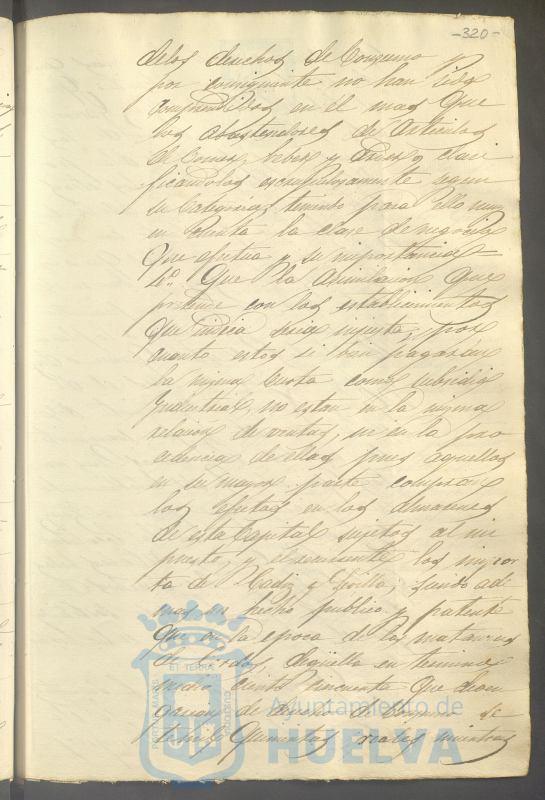 -320-
de los derechos de Consumo y
por consiguiente no han sido
comprendidos en el mas que
los abastecedores de articulos
de Comer, beber y arder, clasi
ficandolos escrupulosamente segun
su Categoria, teniendo para ello muy
en cuenta la clase de negocio
que efectua y su importancia =
6º Que la asimilacion que
pretende con los establecimientos
que indica seria injusta, por
cuanto estos si bien pagarán
la misma Cuota como subsidio
Industrial, no estan en la misma
relacion de ventas, ni en la pro
cedencia de ellas, pues aquellos
en su mayor parte compran
los efectos en los almacenes
de esta Capital sujetos al im
puesto, y el recurrente los impor
ta de Cadiz y Sevilla, siendo ade
mas un hecho publico y patente
que en la epoca de las matanzas
de cerdos, degüella en termino
medio ciento cincuenta que
de derechos de Consumo
quinientos reales mientras
PORTUS MARIS
ET TERRÆ
CUSTODIA
Ayuntamiento de
HUELVA